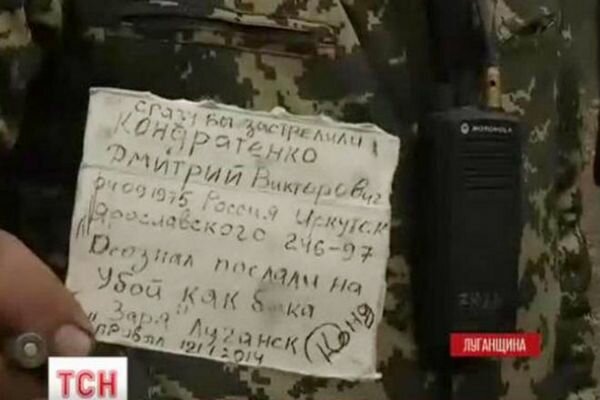 сразу бы застрелили
Кондратенко
Дмитрий Викторович
04 09 1975 Россия Иркутск
Ярославского 246-97
Осознал послали на
убой как быка
"Заря" Луганск Конд
12.11.2014
MOTOROLA
ЛУГАНЩИНА
ТСН